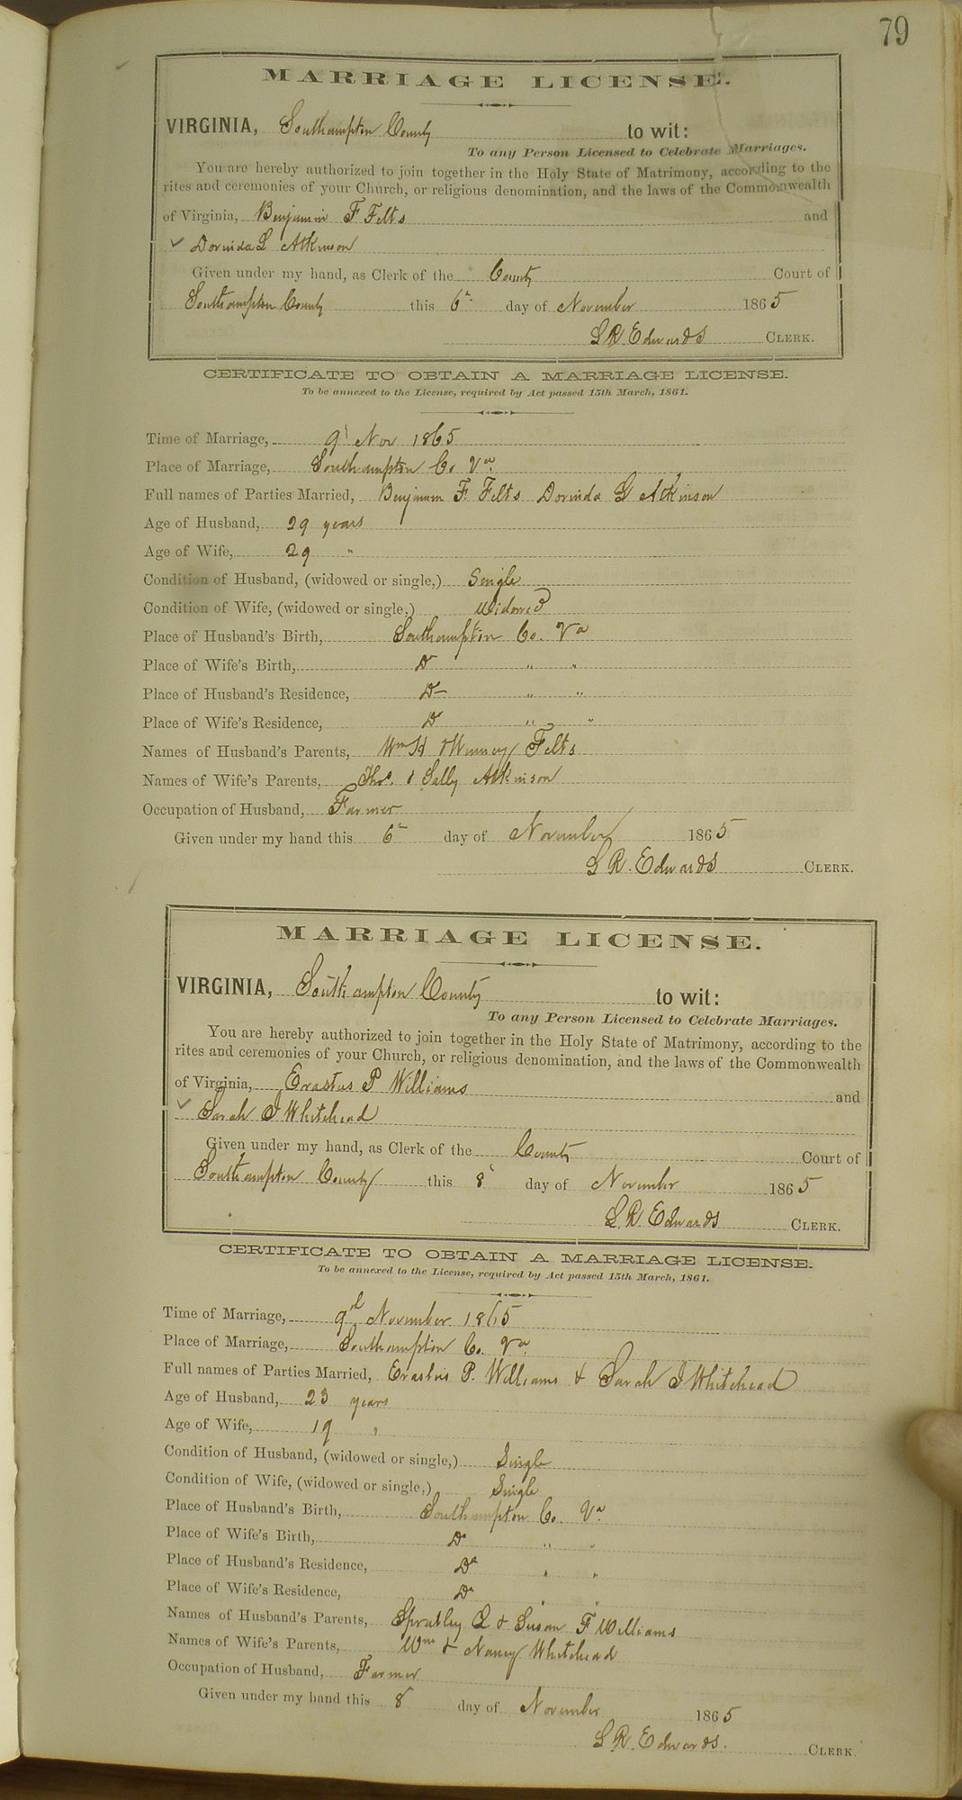 79
MARRIAGE LICENSE.
VIRGINIA, Southampton County to wit:
To any Person Licensed to Celebrate Marriages.
You are hereby authorized to join together in the Holy State of Matrimony, according to the
rites and ceremonies of your Church, or religious denomination, and the laws of the Commonwealth
of Virginia, Benjamin F Felts and
Dorinda L Atkinson
Given under my hand, as Clerk of the County Court of
Southampton County this 6 day of November 1865
L R. Edwards CLERK.
CERTIFICATE TO OBTAIN A MARRIAGE LICENSE.
To be annexed to the License, required by Act passed 15th March, 1861.
Time of Marriage, 9 Nov 1865
Place of Marriage, Southampton Co. Va
Full names of Parties Married, Benjamin F. Felts Dorinda Atkinson
Age of Husband, 29 years
Age of Wife, 29 "
Condition of Husband, (widowed or single,) Single
Condition of Wife, (widowed or single,) Widowed
Place of Husband's Birth, Southampton Co. Va
Place of Wife's Birth, Do " "
Place of Husband's Residence, Do " "
Place of Wife's Residence, Do " "
Names of Husband's Parents, Wm H & Felts
Names of Wife's Parents, Thos. & Sally Atkinson
Occupation of Husband, Farmer
Given under my hand this 6 day of November 1865
L R. Edwards CLERK.
MARRIAGE LICENSE.
VIRGINIA, Southampton County to wit:
To any Person Licensed to Celebrate Marriages.
You are hereby authorized to join together in the Holy State of Matrimony, according to the
rites and ceremonies of your Church, or religious denomination, and the laws of the Commonwealth
of Virginia, Erastus P Williams and
Sarah J Whitehead
Given under my hand, as Clerk of the County Court of
Southampton County this 8 day of November 1865
L. R. Edwards CLERK.
CERTIFICATE TO OBTAIN A MARRIAGE LICENSE.
To be annexed to the License, required by Act passed 15th March, 1861.
Time of Marriage, 9 November 1865
Place of Marriage, Southampton Co. Va
Full names of Parties Married, Erastus P. Williams & Sarah J Whitehead
Age of Husband, 23 years
Age of Wife, 19 "
Condition of Husband, (widowed or single,) Single
Condition of Wife, (widowed or single,) Single
Place of Husband's Birth, Southampton Co. Va
Place of Wife's Birth, Do " "
Place of Husband's Residence, Do " "
Place of Wife's Residence, Do " "
Names of Husband's Parents, Spratley & Susan F Williams
Names of Wife's Parents, Wm & Nancy Whitehead
Occupation of Husband, Farmer
Given under my hand this 8 day of November 1865
L. R. Edwards. CLERK.